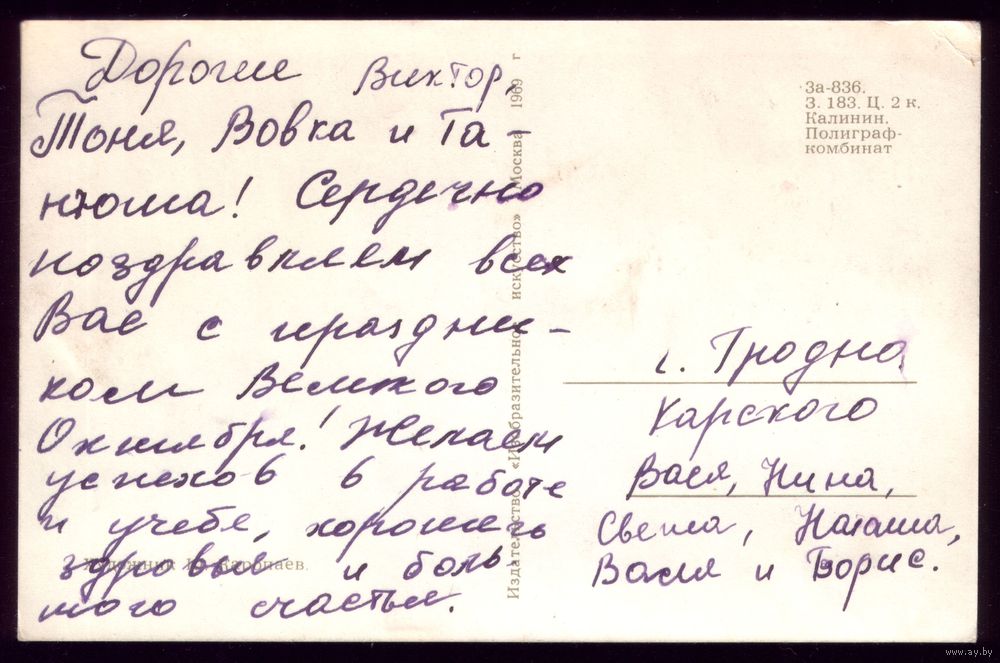 Дорогие Виктор,
Тоня, Вовка и Та-
нюша! Сердечно
поздравляем всех
Вас с праздни-
ком Великого
Октября! Желаем
успехов в работе
и учебе, хорошего
здоровья и боль
шого счастья.
Художник
Издательство «Изобразительное искусство» Москва 1969 г
За-836.
З. 183. Ц. 2 к.
Калинин.
Полиграф-
комбинат
г. Гродно
Карского
Вася, Нина,
Света, Наташа,
Валя и Борис.
www.ay.by